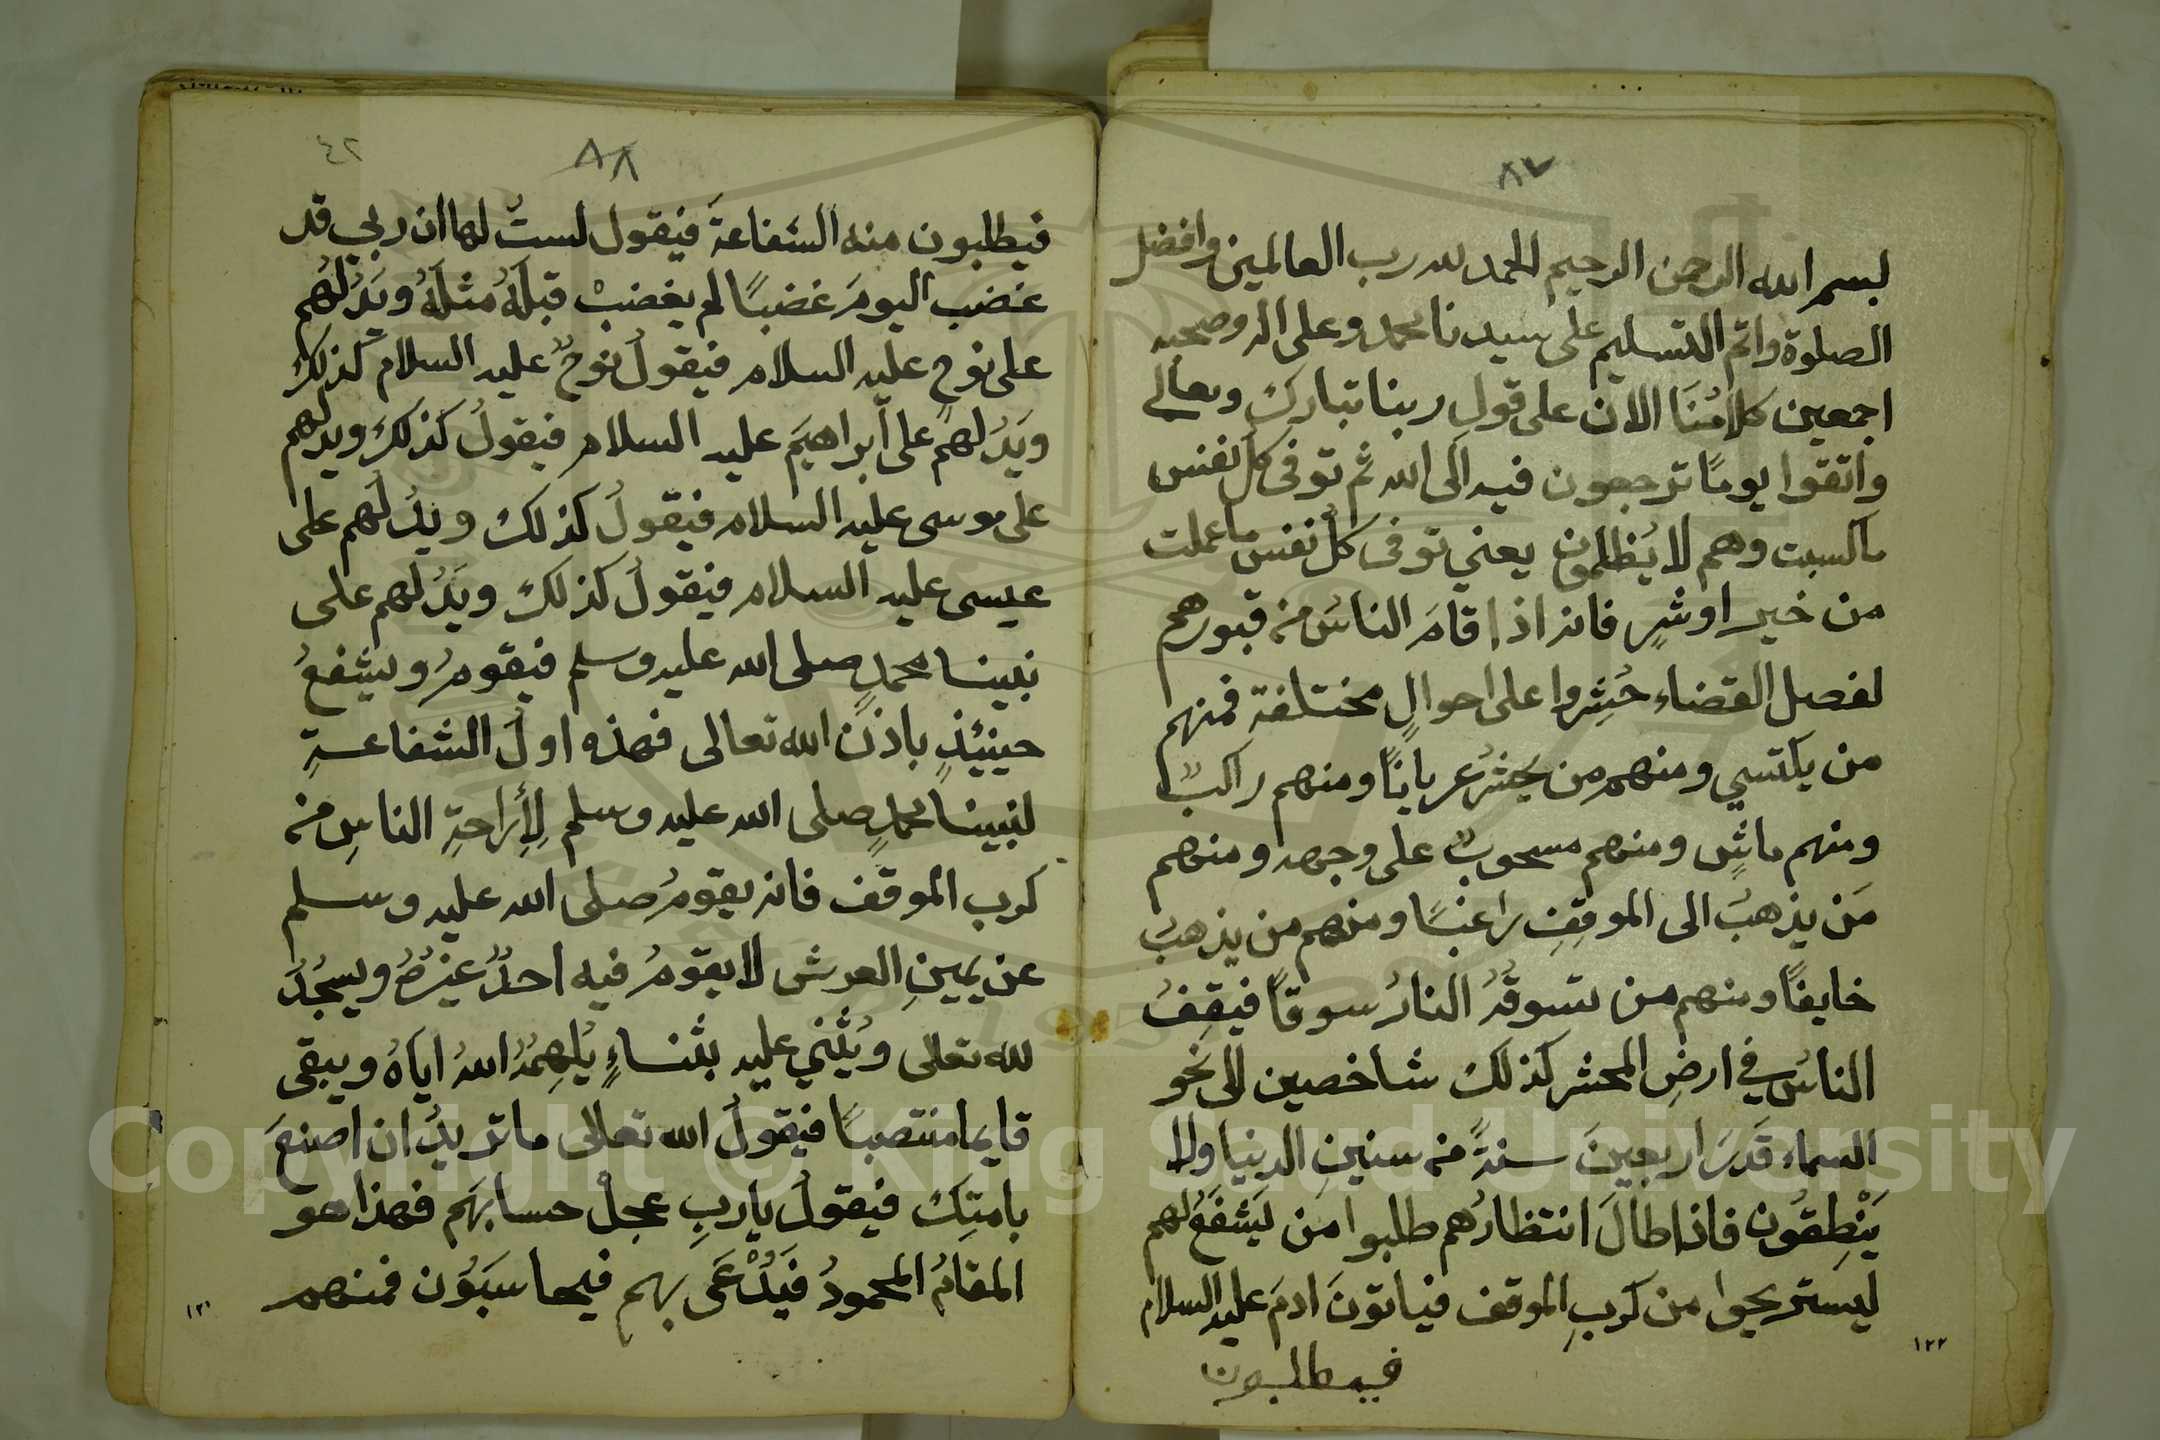 ٨٧
بسم الله الرحمن الرحيم الحمد لله رب العالمين وافضل
الصلوة واتم التسليم على سيدنا محمد وعلى اله وصحبه
اجمعين كلامُنَا الان على قول ربنا تبارك وتعالى
واتقوا يومًا ترجعون فيه الى الله ثم توفى كل نفس
ما كسبت وهم لا يُظلمون يعني توفى كلُ نفس ما عملت
من خير او شرٍ فانه اذا قامَ الناسُ من قبورهم
لفصل القضاء حُشِروا على احوالٍ مختلفة فمنهم
من يكتسي ومنهم من يحشرُ عريانًا ومنهم راكبٌ
ومنهم ماشٍ ومنهم مسحوبٌ على وجهه ومنهم
مَن يذهبُ الى الموقِفِ راغبًا ومنهم من يذهبُ
خايفًا ومنهم من تسوقُه النارُ سوقًا فيقِفُ
الناسُ في ارضِ المحشر كذلك شاخصين الى نحو
السماء قَدَرَ اربعينَ سنةً من سنينِ الدنيا ولا
يَنْطِقُون فاذا طالَ انتظارُهم طلبوا من يَشفَعُ لهم
ليستريحوا من كربِ الموقف فياتونَ ادمَ عليه السلام
فيطلبون
١٢٢
٨٨
٤٢
فيطلبون منه الشفاعةَ فيقول لستُ لها ان ربي قد
غضب اليومَ غضبًا لم يغضبْ قبلَهُ مثلَهُ ويَدُلُهُم
على نوحٍ عليه السلام فيقولُ نوحٌ عليه السلام كذلك
ويَدُلهم على ابراهيمَ عليه السلام فيقولُ كذلكَ ويدلهم
على موسى عليه السلام فيقولُ كذلك ويدُلُهم على
عيسى عليه السلام فيقولُ كذلك ويَدُلهم على
نبينا محمدٍ صلى الله عليه وسلم فيقومُ ويشفعُ
حينيئذٍ باذن الله تعالى فهذه اولُ الشفاعةِ
لنبينا محمدٍ صلى الله عليه وسلم لِأِراحةِ الناسِ من
كرب الموقف فانه يقومُ صلى الله عليه وسلم
عن يمينِ العرش لا يقومُ فيه احدٌ غيرُهُ ويسجُدُ
لله تعالى ويُثني عليه بثناءٍ يُلهِمُهُ اللهُ اياهُ ويبقى
قايما منتصبًا فيقولُ الله تعالى ما تريدُ ان اصنعَ
بامتِكَ فيقولُ ياربِ عجلْ حسابَهم فهذا هو
المقامُ المحمودُ فيَدُعَى بهم فيحاسبَوُن فمنهم
١٢١
Copyright © King Saud University